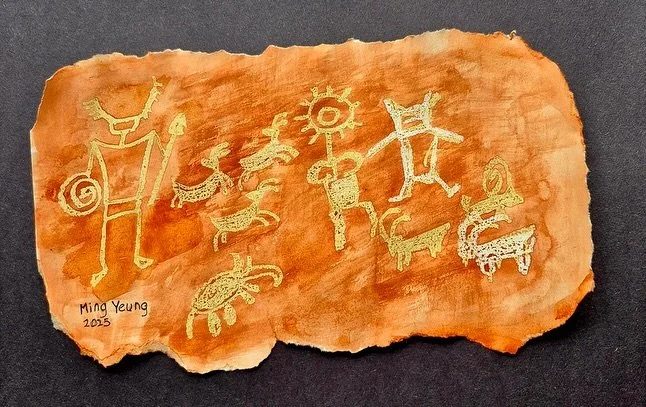 Ming Yeung
2025